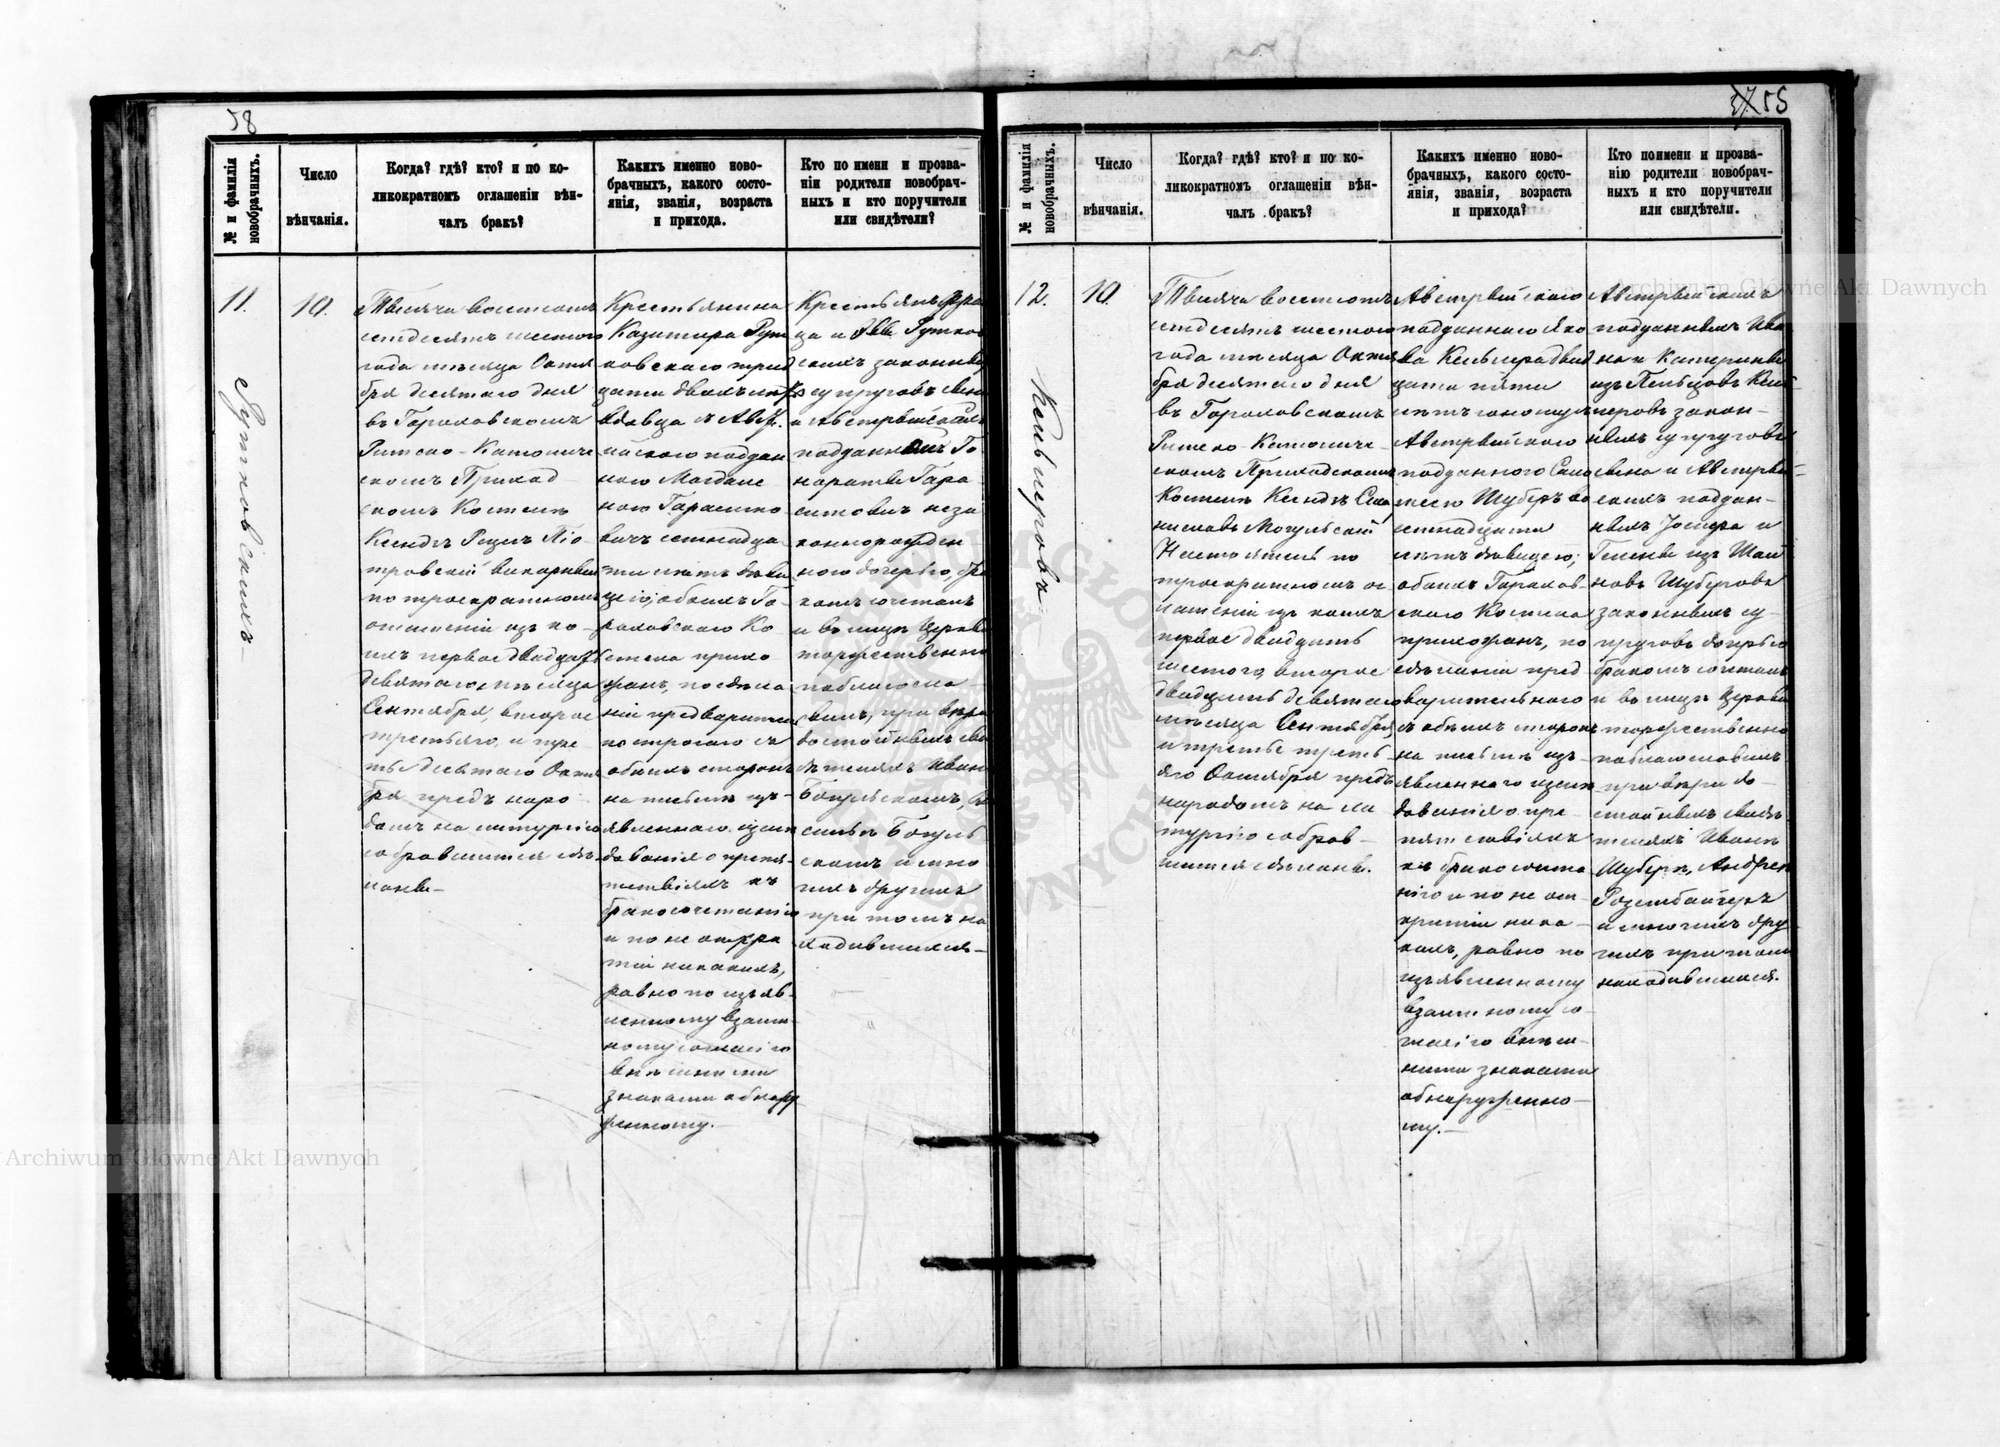 58
№ и фамилія новобрачныхъ.
Число вѣнчанія.
Когда? гдѣ? кто? и по ко-
ликократномъ оглашеніи вѣн-
чалъ бракъ?
Какихъ именно ново-
брачныхъ, какого состо-
янія, званія, возраста
и прихода.
Кто по имени и прозва-
ніи родители новобрач-
ныхъ и кто поручители
или свидѣтели?
11.
Рутковскихъ
10.
Тысяча восемсотъ
семдесятъ шестого
года мѣсяца Октя
бря десятаго дня
въ Гороховскомъ
Римско-Католиче
скомъ Приход
скомъ Костелѣ
Ксендзъ Піо
тровскій викарный
по троекратномъ
оглашеніи изъ ко-
ихъ первое двадцать
девятаго мѣсяца
Сентября, второе
третьяго и тре
тье десятаго Октя
бря предъ наро
домъ на литургію
собравшимся сдѣ-
ланы-
Крестьянина
Казимира Рут
ковскаго трид
цати двухъ лѣтъ
вдовца съ Авст.
ійского поддан
ного
семнадца
ти лѣтъ дѣви
цею, обоихъ Го
роховскаго Ко
стела прихо
жанъ, по сдѣла
ніи предваритель
но строгаго съ
обоихъ сторонъ
на письмѣ изъ-
явленнаго изслѣ
дованія о препя-
тствіяхъ къ
бракосочетанію
и по не откры
тіи никакихъ,
равно по изъяв-
ленному взаим-
ному согласію
внѣшними
знаками обнару
женному.
Крестьянъ Фра
ца и Эвы Рутков
скихъ законныхъ
супруговъ сына
и Австрійскаго
подданного Го
нораты Гара
симовичъ неза
коннорожден
ного дочерью, бра
комъ сочеталъ
и въ лицѣ Церкви
торжественно
поблагосло-
вилъ, при вѣро
достойныхъ сви
дѣтеляхъ Иванѣ
и мно
гихъ другихъ
при томъ на
ходившихся-
3755
№ и фамилія новобрачныхъ.
Число вѣнчанія.
Когда? гдѣ? кто? и по ко-
ликократномъ оглашеніи вѣн-
чалъ бракъ?
Какихъ именно ново-
брачныхъ, какого состо-
янія, званія, возраста
и прихода?
Кто по имени и прозва-
нію родители новобрач-
ныхъ и кто поручители
или свидѣтели.
12.
Кельнеровъ
10.
Тысяча восемсотъ
семдесятъ шестого
года мѣсяца Октя
бря десятаго дня
въ Гороховскомъ
Римско-Католиче-
скомъ Приходскомъ
Костелѣ Ксендзъ Ста
ниславъ Могульскій
Настоятель по
троекратномъ ог
лашеніи изъ коихъ
первое двадцать
шестого, второе
двадцать девятаго
мѣсяца Сентября,
и третье треть-
яго Октября предъ
народомъ на ли
тургію собрав-
шимся сдѣланы.
Австрійскаго
подданнаго Яко
ва Кельнера двад
цати пяти
лѣтъ юношу съ
Австрійскаго
подданного Сало
меею Шуберъ во
семнадцати
лѣтъ дѣвицею;
обоихъ Горохов-
ского Костела
прихожанъ, по
сдѣланіи пред
варительного
съ обоихъ сторонъ
на письмѣ изъ
явленнаго изслѣ
дованія о пре-
пятствіяхъ
къ бракосочета
нію и по не от
крытіи ника-
кихъ, равно по
изъявленному
взаимному со-
гласію внѣш-
ними знаками
обнаруженно-
му.-
Австрійскихъ
подданныхъ Ива
на и Катерины
изъ Пельцовъ Кель
неровъ закон-
ныхъ супруговъ
сына и Австрій-
скихъ поддан-
ныхъ Іосифа и
Гелены изъ
Шуберовъ
законныхъ су-
пруговъ дочерью
бракомъ сочеталъ
и въ лицѣ Церкви
торжественно
поблагословилъ
при вѣро до-
стойныхъ свидѣ
теляхъ Иванѣ
Шуберъ, Андреѣ
Розембайгеръ
и многихъ дру
гихъ при томъ
находившихся.
Archiwum Główne Akt Dawnych
Archiwum Główne Akt Dawnych